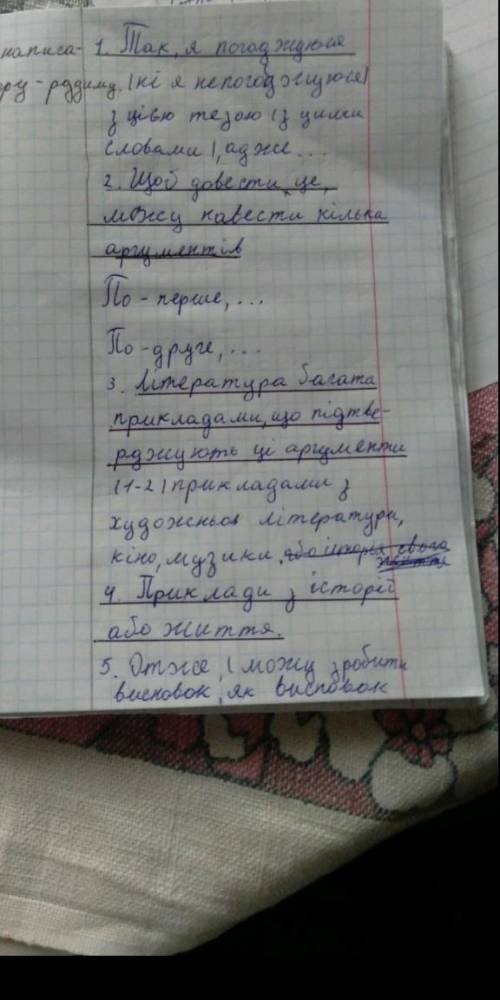 написа-
1. Так, я погоджуюся
(ні я непогоджуюся)
з цією тезою (з цими
словами), адже...
2. Щоб довести це,
можу навести кілька
аргументів
По - перше,...
По - друге,...
3. Література багата
прикладами, що підтве-
рджують ці аргументи
(1-2) прикладами з
художньої літератури,
кіно, музики.
4. Приклади з історії
або життя.
5. Отже, (можу зробити
висновок, як висновок